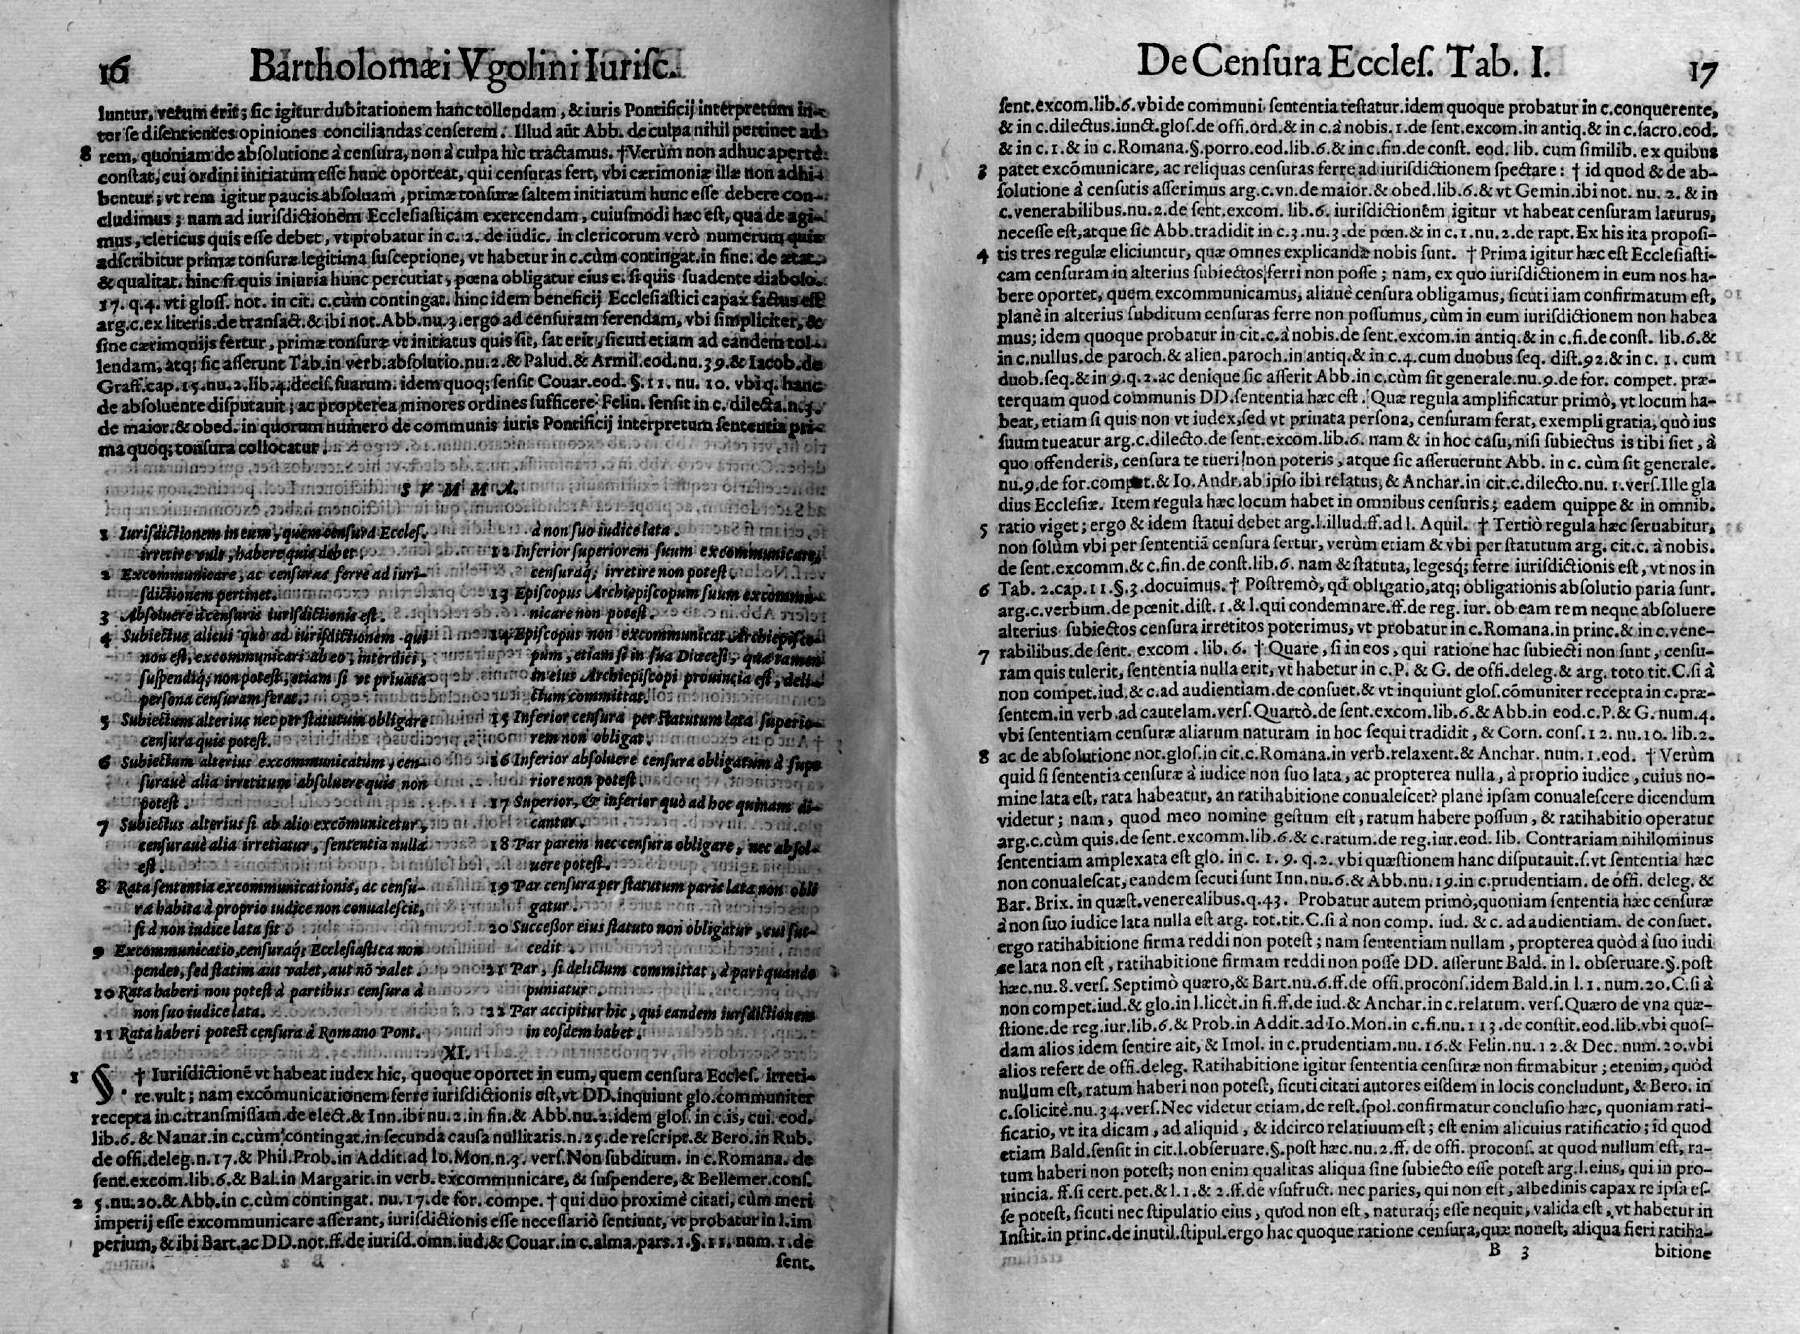 16 Bartholomæi Vgolini Iurisc.
luntur, verum erit; sic igitur dubitationem hanc tollendam, & iuris Pontificij interpretum in-
ter se dissentientes opiniones conciliandas censerem. Illud aũt Abb. de culpa nihil pertinet ad
8 rem, quoniam de absolutione à censura, non à culpa hìc tractamus. †Verùm non adhuc apertè
constat, cui ordini initiatum esse hunc oporteat, qui censuras fert, vbi cærimoniæ illæ non adhi-
bentur; vt rem igitur paucis absoluam, primæ tonsuræ saltem initiatum hunc esse debere con-
cludimus; nam ad iurisdictionem Ecclesiasticam exercendam, cuiusmodi hæc est, qua de agi-
mus, clericus quis esse debet, vt probatur in c. 2. de iudic. in clericorum verò numerum quis
adscribitur primæ tonsuræ legitima susceptione, vt habetur in c. cùm contingat. in fine. de ætat.
& qualitat. hinc si quis iniuria hunc percutiat, pœna obligatur eius c. si quis suadente diabolo.
17. q.4. vti gloss. not. in cit. c. cùm contingat. hinc idem beneficij Ecclesiastici capax factus est
arg.c.ex literis.de transact.& ibi not.Abb.nu.3.ergo ad censuram ferendam, vbi simpliciter, &
sine cærimonijs fertur, primæ tonsuræ vt initiatus quis sit, sat erit, sicuti etiam ad eandem tol-
lendam, atq; sic asserunt Tab.in verb.absolutio.nu.2.& Palud.& Armil.eod.nu.39.& Iacob.de
Graff.cap.15.nu.2.lib.4.decis.suarum. idem quoq; sensit Couar.eod. §.11. nu. 10. vbi q. hanc
de absoluente disputauit; ac propterea minores ordines sufficere Felin. sensit in c. dilecta.n.3.
de maior.& obed. in quorum numero de communis iuris Pontificij interpretum sententia pri-
ma quoq; tonsura collocatur.
SVMMA.
1 Iurisdictionem in eum, quem censura Eccles.
irretire vult, habere quis debet.
2 Excommunicare, ac censuras ferre ad iuri-
sdictionem pertinet.
3 Absoluere à censuris iurisdictionis est.
4 Subiectus alicui quò ad iurisdictionem qui
non est, excommunicari ab eo, interdici,
suspendiq; non potest, etiam si vt priuata
persona censuram ferat.
5 Subiectum alterius nec per statutum obligare
censura quis potest.
6 Subiectum alterius excommunicatum, cen-
surauè alia irretitum absoluere quis non
potest.
7 Subiectus alterius si ab alio excõmunicetur,
censurauè alia irretiatur, sententia nulla
est.
8 Rata sententia excommunicationis, ac censu-
ræ habita à proprio iudice non conualescit,
si à non iudice lata sit.
9 Excommunicatio, censuraq; Ecclesiastica non
pendet, sed statim aut valet, aut nõ valet.
10 Rata haberi non potest à partibus censura à
non suo iudice lata.
11 Rata haberi potest censura à Romano Pont.
à non suo iudice lata.
12 Inferior superiorem suum excommunicare,
censuraq; irretire non potest.
13 Episcopus Archiepiscopum suum excommu-
nicare non potest.
14 Episcopus non excommunicat Archiepisco-
pum, etiam si in sua Diœcesi, quæ tamen
in eius Archiepiscopi prouincia est, deli-
ctum committat.
15 Inferior censura per statutum lata superio-
rem non obligat.
16 Inferior absoluere censura obligatum à supe
riore non potest.
17 Superior, & inferior quò ad hoc quinam di-
cantur.
18 Par parem nec censura obligare, nec absol-
uere potest.
19 Par censura per statutum paris lata non obli
gatur.
20 Successor eius statuto non obligatur, cui suc-
cedit.
21 Par, si delictum committat, à pari quando
puniatur.
22 Par accipitur hic, qui eandem iurisdictionem
in eosdem habet.
XI.
1 §. † Iurisdictionẽ vt habeat iudex hic, quoque oportet in eum, quem censura Eccles. irreti-
re vult; nam excõmunicationem ferre iurisdictionis est, vt DD. inquiunt glo.communiter
recepta in c.transmissam.de elect.& Inn.ibi nu.2.in fin.& Abb.nu.2.idem glos. in c.is, cui. eod.
lib.6. & Nauar.in c.cùm contingat.in secunda causa nullitatis.n.25.de rescript.& Bero.in Rub.
de offi.deleg.n.17.& Phil.Prob.in Addit.ad Io.Mon.n.3. vers.Non subditum. in c.Romana. de
sent.excom.lib.6.& Bal.in Margarit.in verb.excommunicare, & suspendere, & Bellemer.cons.
2 5.nu.20.& Abb.in c.cùm contingat. nu.17.de for. compe. † qui duo proximè citati, cùm meri
imperij esse excommunicare asserant, iurisdictionis esse necessariò sentiunt, vt probatur in l.im
perium, & ibi Bart.ac DD.not.ff.de iurisd.omn.iud.& Couar.in c.alma.pars.1.§.11. num.1.de
sent.
De Censura Eccles. Tab. I. 17
sent.excom.lib.6.vbi de communi sententia testatur.idem quoque probatur in c.conquerente,
& in c.dilectus.iunct.glos.de offi.ord.& in c.à nobis.1.de sent.excom.in antiq.& in c.sacro.eod.
& in c.1.& in c.Romana.§.porro.eod.lib.6.& in c.fin.de const. eod. lib. cum similib. ex quibus
3 patet excõmunicare, ac reliquas censuras ferre ad iurisdictionem spectare: † id quod & de ab-
solutione à censuris asserimus arg.c.vn.de maior.& obed.lib.6.& vt Gemin.ibi not. nu. 2. & in
c.venerabilibus.nu.2.de sent.excom. lib.6. iurisdictionem igitur vt habeat censuram laturus,
necesse est, atque sic Abb.tradidit in c.3.nu.3.de pœn.& in c.1.nu.2.de rapt. Ex his ita proposi-
4 tis tres regulæ eliciuntur, quæ omnes explicandæ nobis sunt. † Prima igitur hæc est Ecclesiasti-
cam censuram in alterius subiectos ferri non posse; nam, ex quo iurisdictionem in eum nos ha-
bere oportet, quem excommunicamus, aliauè censura obligamus, sicuti iam confirmatum est,
planè in alterius subditum censuras ferre non possumus, cùm in eum iurisdictionem non habea
mus; idem quoque probatur in cit.c.à nobis.de sent.excom.in antiq.& in c.fi.de const. lib.6.&
in c.nullus.de paroch.& alien.paroch.in antiq.& in c.4.cum duobus seq. dist.92.& in c. 1. cum
duob.seq.& in 9.q.2.ac denique sic asserit Abb.in c.cùm sit generale.nu.9.de for. compet. præ-
terquam quod communis DD.sententia hæc est. Quæ regula amplificatur primò, vt locum ha-
beat, etiam si quis non vt iudex, sed vt priuata persona, censuram ferat, exempli gratia, quò ius
suum tueatur arg.c.dilecto.de sent.excom.lib.6. nam & in hoc casu, nisi subiectus is tibi siet, à
quo offenderis, censura te tueri non poteris, atque sic asseruerunt Abb. in c. cùm sit generale.
nu.9.de for.compet.& Io. Andr.ab ipso ibi relatus, & Anchar.in cit.c.dilecto.nu.1.vers.Ille gla
dius Ecclesiæ. Item regula hæc locum habet in omnibus censuris; eadem quippe & in omnib.
5 ratio viget; ergo & idem statui debet arg.l.illud.ff.ad l. Aquil. † Tertiò regula hæc seruabitur,
non solùm vbi per sententiã censura fertur, verùm etiam & vbi per statutum arg. cit.c. à nobis.
de sent.excomm.& c.fin.de const.lib.6. nam & statuta, legesq; ferre iurisdictionis est, vt nos in
6 Tab. 2.cap.11.§.3.docuimus. † Postremò, qđ obligatio, atq; obligationis absolutio paria sunt.
arg.c.verbum.de pœnit.dist.1.& l.qui condemnare.ff.de reg. iur. ob eam rem neque absoluere
alterius subiectos censura irretitos poterimus, vt probatur in c.Romana.in princ.& in c.vene-
7 rabilibus.de sent. excom. lib. 6. † Quare, si in eos, qui ratione hac subiecti non sunt, censu-
ram quis tulerit, sententia nulla erit, vt habetur in c.P. & G. de offi.deleg.& arg. toto tit.C.si à
non compet.iud.& c.ad audientiam.de consuet.& vt inquiunt glos.cõmuniter recepta in c.præ-
sentem.in verb.ad cautelam.vers.Quartò.de sent.excom.lib.6.& Abb.in eod.c.P.& G. num.4.
vbi sententiam censuræ aliarum naturam in hoc sequi tradidit, & Corn. cons.12. nu.10. lib.2.
8 ac de absolutione not.glos.in cit.c.Romana.in verb.relaxent.& Anchar. num.1.eod. † Verùm
quid si sententia censuræ à iudice non suo lata, ac propterea nulla, à proprio iudice, cuius no-
mine lata est, rata habeatur, an ratihabitione conualescet? planè ipsam conualescere dicendum
videtur; nam, quod meo nomine gestum est, ratum habere possum, & ratihabitio operatur
arg.c.cùm quis.de sent.excomm.lib.6.& c.ratum.de reg.iur.eod. lib. Contrariam nihilominus
sententiam amplexata est glo. in c.1.9. q.2. vbi quæstionem hanc disputauit.s.vt sententia hæc
non conualescat, eandem secuti sunt Inn.nu.6.& Abb.nu.19.in c.prudentiam. de offi. deleg. &
Bar. Brix. in quæst.venerealibus.q.43. Probatur autem primò, quoniam sententia hæc censuræ
à non suo iudice lata nulla est arg. tot.tit.C.si à non comp. iud. & c. ad audientiam. de consuet.
ergo ratihabitione firma reddi non potest; nam sententiam nullam, propterea quòd à suo iudi
ce lata non est, ratihabitione firmam reddi non posse DD. asserunt Bald. in l. obseruare.§.post
hæc.nu.8.vers. Septimò quæro, & Bart.nu.6.ff.de offi.procons.idem Bald.in l.1. num.20.C.si à
non compet.iud.& glo.in l.licèt.in fi.ff.de iud.& Anchar.in c.relatum. vers.Quæro de vna quæ-
stione.de reg.iur.lib.6.& Prob.in Addit.ad Io.Mon.in c.fi.nu.113.de constit.eod.lib.vbi quos-
dam alios idem sentire ait, & Imol. in c.prudentiam.nu.16.& Felin.nu.12.& Dec. num.20.vbi
alios refert de offi.deleg. Ratihabitione igitur sententia censuræ non firmabitur; etenim, quòd
nullum est, ratum haberi non potest, sicuti citati autores eisdem in locis concludunt, & Bero. in
c.solicitè.nu.34.vers.Nec videtur etiam.de rest.spol.confirmatur conclusio hæc, quoniam rati-
ficatio, vt ita dicam, ad aliquid, & idcirco relatiuum est; est enim alicuius ratificatio; id quod
etiam Bald.sensit in cit.l.obseruare.§.post hæc.nu.2.ff. de offi. procons. at quod nullum est, ra-
tum haberi non potest; non enim qualitas aliqua sine subiecto esse potest arg.l.eius, qui in pro-
uincia. ff.si cert.pet.& l.1.& 2.ff.de vsufruct. nec paries, qui non est, albedinis capax re ipsa es-
se potest, sicuti nec stipulatio eius, quod non est, naturaq; esse nequit, valida est, vt habetur in
Instit.in princ.de inutil.stipul.ergo hac quoque ratione censura, quæ non est, aliqua fieri ratiha-
B 3 bitione